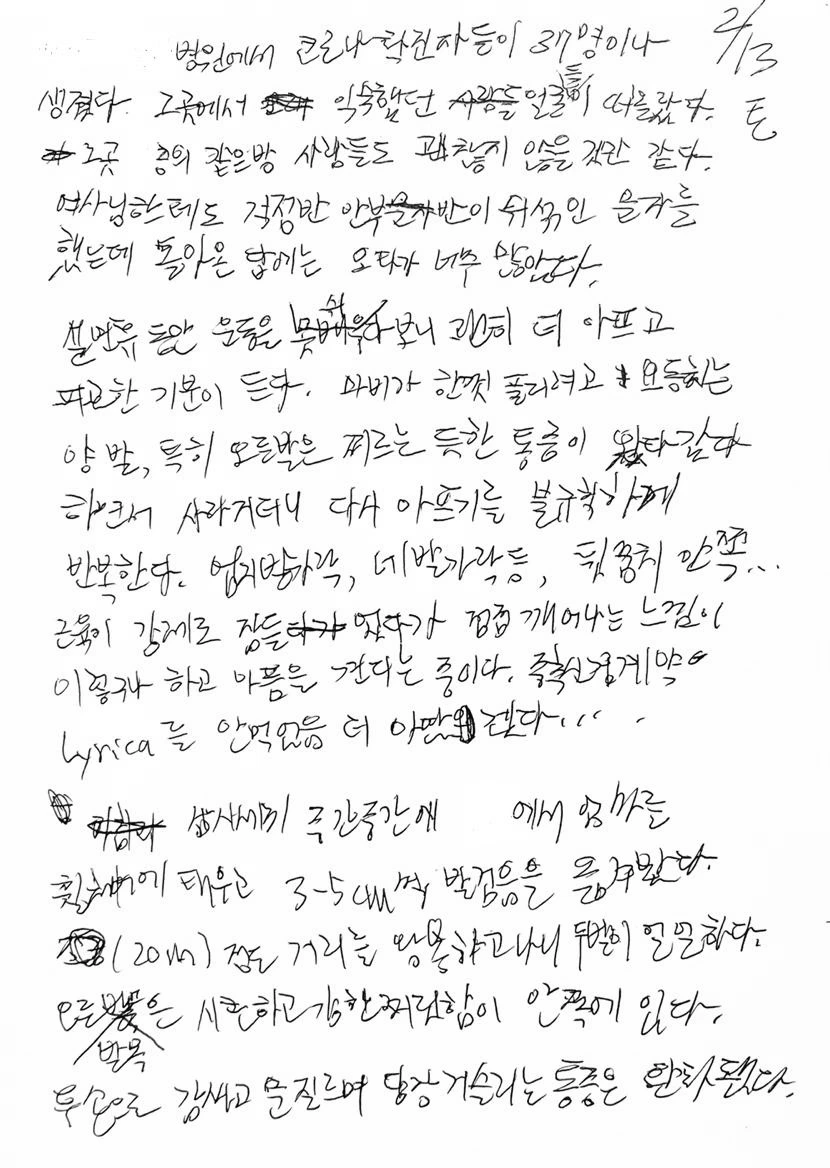 2/13
토
병원에서 코로나 확진자들이 37명이나
생겼다. 그곳에서 익숙했던 얼굴들이 떠올랐다.
그곳 층의 같은방 사람들도 괜찮지 않을 것만 같다.
여사님한테도 걱정반 안부반이 뒤섞인 문자를
했는데 돌아온 답에는 오타가 너무 많았다.
설연휴 동안 운동을 쉬다보니 괜히 더 아프고
피곤한 기분이 든다. 마비가 한껏 풀리려고 요동치는
양 발, 특히 오른발은 찌르는 듯한 통증이 왔다갔다
하면서 사라지더니 다시 아프기를 불규칙하게
반복한다. 엄지발가락, 네발가락등, 뒷꿈치 안쪽...
근육이 강제로 잠들었다가 점점 깨어나는 느낌이
이렇구나 하고 아픔을 견디는 중이다. 중추신경계약
Lyrica를 안먹었음 더 아팠겠다...
삼시세끼 중간중간에 에서 엄마를
휠체어에 태우고 3-5cm씩 발걸음을 옮겨봤다.
(20m) 정도 거리를 왕복하고나니 두발이 얼얼하다.
오른발목은 시큰하고 강한 찌릿함이 안쪽에 있다.
두손으로 감싸고 문지르며 당장 거슬리는 통증은 완화됐다.